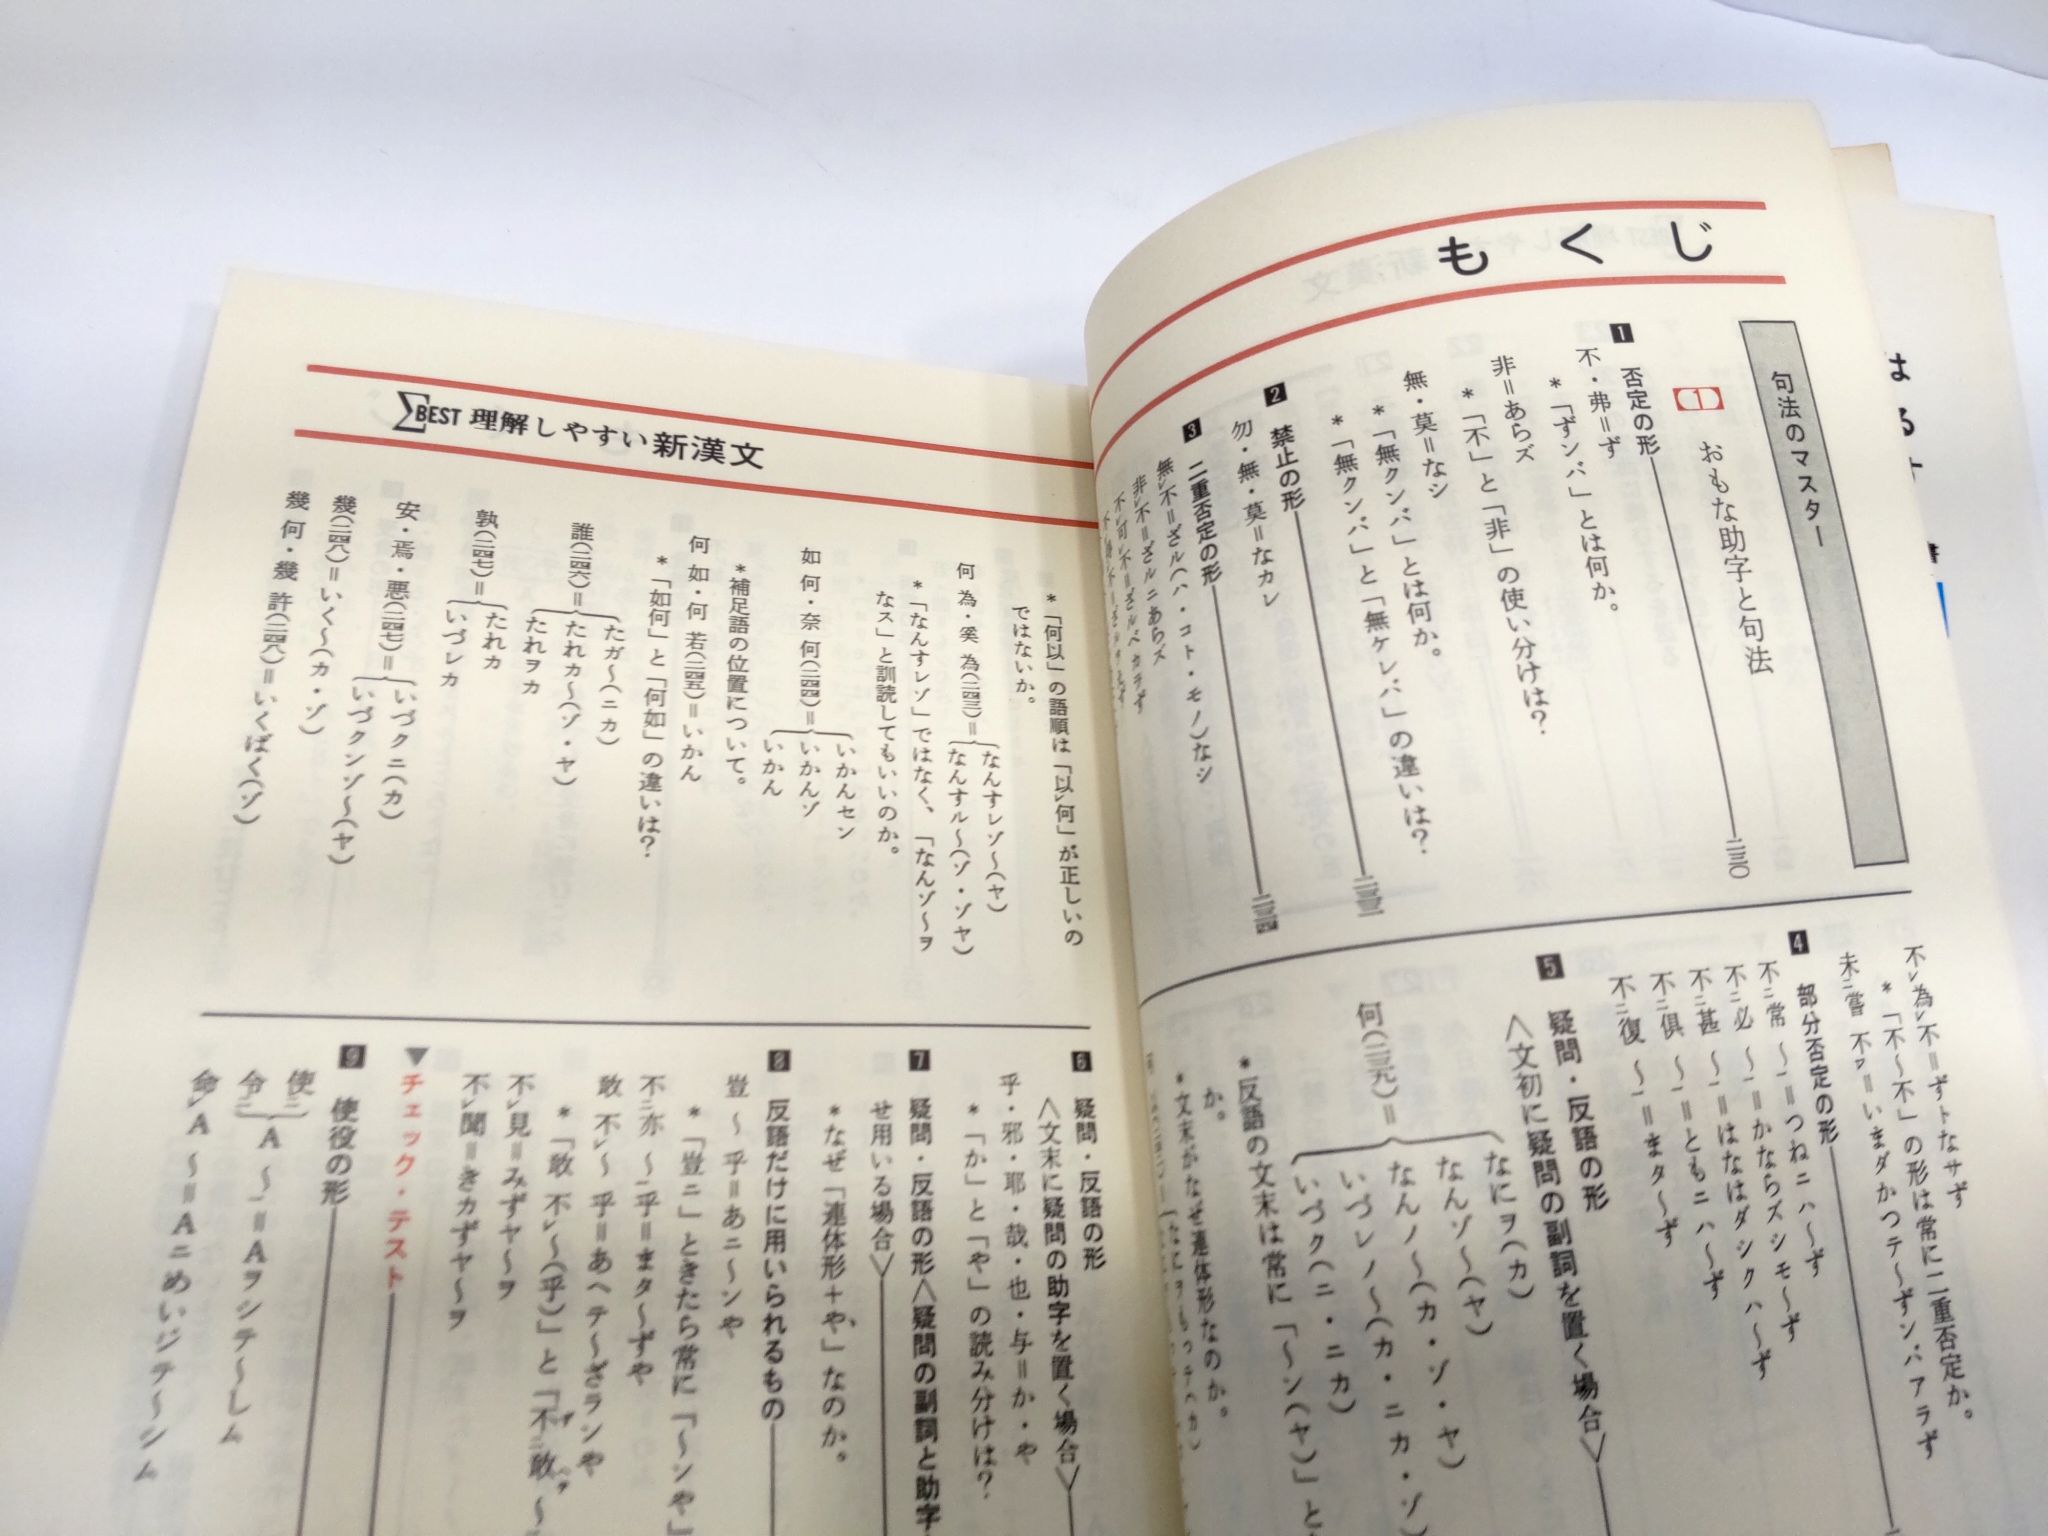 もくじ
句法のマスター
【1】 おもな助字と句法 二三〇
1 否定の形
不・弗＝ず
＊「ずンバ」とは何か。
非＝あらズ
＊「不」と「非」の使い分けは？
無・莫＝なシ
＊「無クンバ」とは何か。
＊「無クンバ」と「無ケレバ」の違いは？
2 禁止の形
勿・無・莫＝なカレ
3 二重否定の形
無レ不＝ざル（ハ・コト・モノ）なシ
非レ不＝ざルニあらズ
不レ可レ不＝ざルベカラず
不レ為レ不＝ずトなサず
＊「不〜不」の形は常に二重否定か。
未ニ嘗不一＝いまダかつテ〜ずンバアラず
4 部分否定の形
不ニ常〜一＝つねニハ〜ず
不ニ必〜一＝かならズシモ〜ず
不ニ甚〜一＝はなはダシクハ〜ず
不ニ俱〜一＝ともニハ〜ず
不ニ復〜一＝まタ〜ず
5 疑問・反語の形
〈文初に疑問の副詞を置く場合〉
何（二三九）＝
なにヲ（カ）
なんゾ〜（ヤ）
なんノ〜（カ・ゾ・ヤ）
いづレノ〜（カ・ニカ・ゾ
いづク（ニ・ニカ）
＊反語の文末は常に「〜ン（ヤ）」と
か。
＊文末がなぜ連体形なのか。
ΣBEST 理解しやすい新漢文
＊「何以」の語順は「以レ何」が正しいの
ではないか。
何為・奚為（二四三）＝
なんすレゾ〜（ヤ）
なんすル〜（ゾ・ゾヤ）
＊「なんすレゾ」ではなく、「なんゾ〜ヲ
なス」と訓読してもいいのか。
如何・奈何（二四四）＝
いかんセン
いかんゾ
いかん
＊補足語の位置について。
何如・何若（二四五）＝いかん
＊「如何」と「何如」の違いは？
誰（二四六）＝
たガ〜（ニカ）
たれカ〜（ゾ・ヤ）
たれヲカ
孰（二四七）＝
たれカ
いづレカ
安・焉・悪（二四七）＝
いづクニ（カ）
いづクンゾ〜（ヤ）
幾（二四八）＝いく〜（カ・ゾ）
幾何・幾許（二四八）＝いくばく（ゾ）
6 疑問・反語の形
〈文末に疑問の助字を置く場合〉
乎・邪・耶・哉・也・与＝か・や
＊「か」と「や」の読み分けは？
7 疑問・反語の形〈疑問の副詞と助字
せ用いる場合〉
＊なぜ「連体形＋や」なのか。
8 反語だけに用いられるもの
豈〜乎＝あニ〜ンや
＊「豈ニ」ときたら常に「〜ンや」
不ニ亦〜一乎＝まタ〜ずや
敢不レ〜乎＝あヘテ〜ざランや
＊「敢不レ〜（乎）」と「不ニ敢〜
不レ見＝みずヤ〜ヲ
不レ聞＝きカずヤ〜ヲ
▼チェック・テスト
9 使役の形
使ニ
令ニ
A〜一＝Aヲシテ〜しム
命レA〜＝Aニめいジテ〜シム